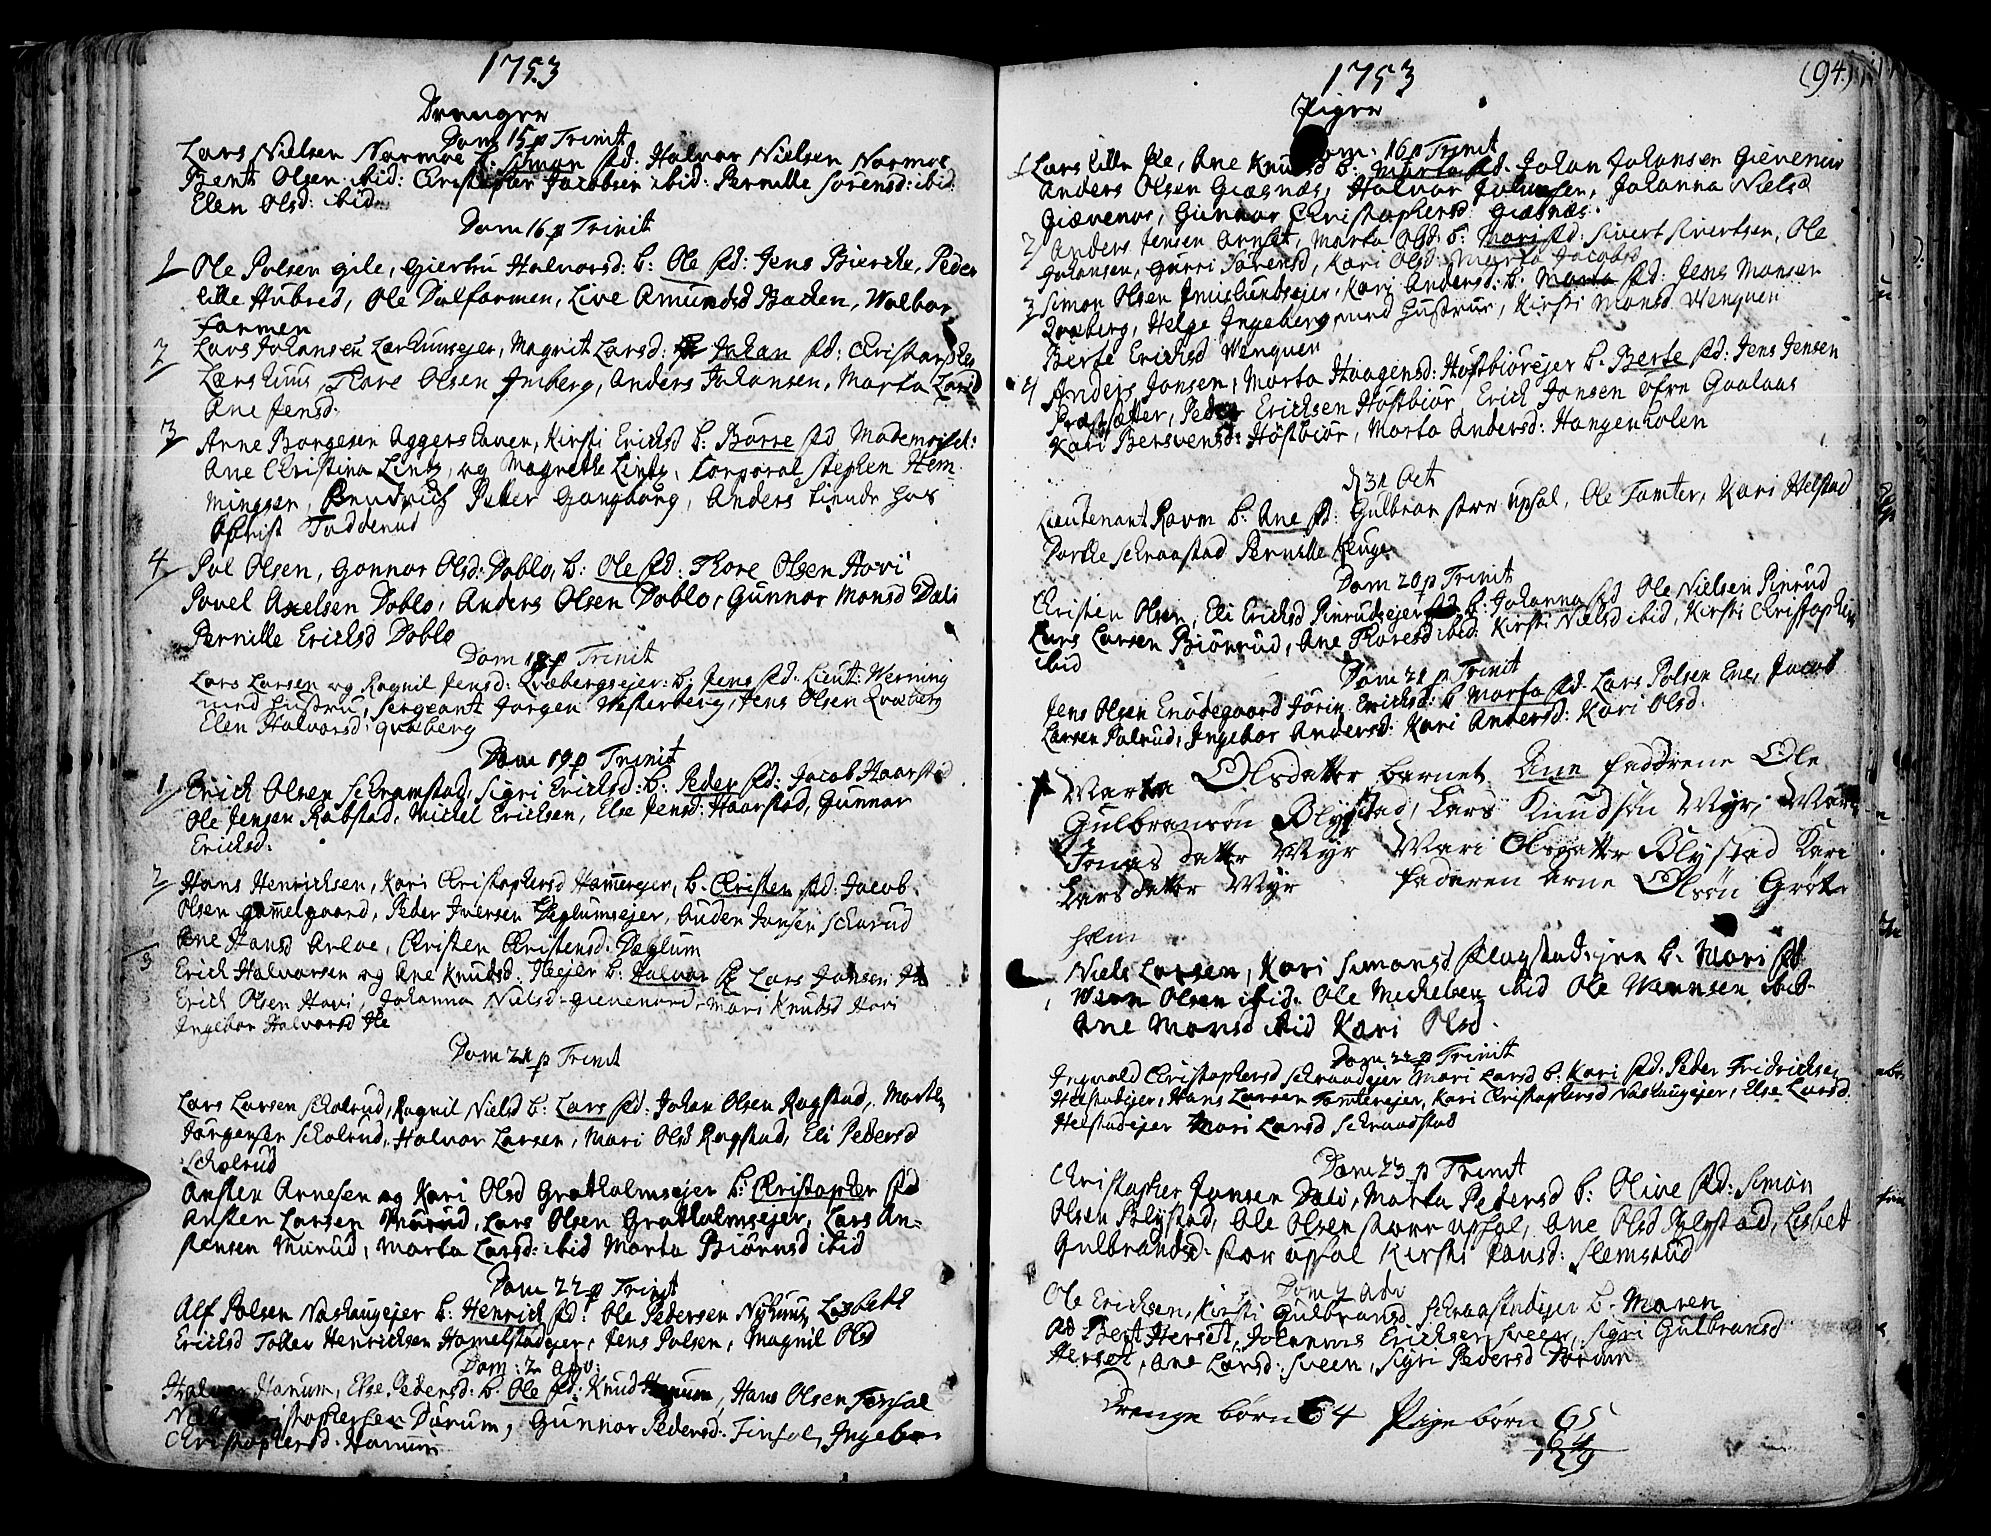 1753
Drenger
Dom 15 p Trinit
Lars Nielsen Narmoe b: Simon fd: Halvor Nielsen Narmoe
Bent Olsen ibid: Christopher Jacobsen ibid: Pernille Sørensd: ibid
Elen Olsd: ibid
Dom 16 p Trinit
1 Ole Polsen Gile, Giertru Halvorsd: b: Ole fd: Jens Biercke, Peder
lille Hubred, Ole Dalfarmen, Live Amundsd Backen, Walbor
Farmen
2 Lars Johansen Lærhuusejer, Magrit Larsd: b Johan fd: Christopher
Lærshuus, Thore Olsen Imberg, Anders Johansen, Marta Larsd
Ane Jensd.
3 Arne Borgesen Aggershauen, Kirsti Ericksd b: Børre fd Mademoisel:
Ane Christina Lintz, og Magrethe Lintz, Corporal Stephen Hem-
mingsen, Peter Gangborg, Anders tiende hos
Obrist Todderud
4 Pol Olsen, Gonnor Olsd: Doblo, b: Ole fd: Thore Olsen Hovi
Povel Axelsen Doblo, Anders Olsen Doblo, Gunnor Monsd Dæli
Pernille Ericksd Doblo
Dom 18 p Trinit
Lars Larsen og Ragnil Jensd: Qvæbergsejer: b: Jens fd. Lieut: Werning
med Hustru, Sergeant Jørgen Westerberg, Jens Olsen Qvæberg
Elen Halvorsd: Qvæberg
Dom 19 p Trinit
1 Erick Olsen Schramstad, Sigri Ericksd: b: Peder fd: Jacob Haarstad
Ole Jensen Rabstad, Michel Ericksen, Else Jensd: Haarstad, Gunnor
Ericksd.
2 Hans Henricksen, Kari Christophersd Hamerejer, b. Christen fd: Jacob
Olsen Gammelgaard, Peder Iversen Dæglumsejer, Auden Jonsen Scharud
Ane Hansd Arloe, Christen Christensd: Dæglum
3 Erick Halvorsen og Ane Knudsd. Ilejer b: Halvor fd Lars Jonsen Ile
Erick Olsen Hovi, Johanna Nielsd: Gievenord, Mari Knudsd Hovi
Ingebor Halvorsd Ile
Dom 21 p Trinit
Lars Larsen Scholrud, Ragnil Nielsd b: Lars fd: Johan Olsen Ragstad, Morten
Jørgensen Scholrud, Halvor Larsen, Mari Olsd Ragstad, Eli Pedersd
Scholrud
Ansten Arnesen og Kari Olsd Grøtholmsejer b: Christopher fd
Ansten Larsen Mørud, Lars Olsen Grøtholmsejer, Lars An-
stensen Mørud, Marta Larsd: ibid Marta Biørnsd ibid
Dom 22 p Trinit
Alf Polsen Nashaugejer b: Henrick fd: Ole Pedersen Nyhuus Lisbeth
Ericksd Tollev Henricksen Hamelstadejer, Jens Polsen, Magnil Olsd
Dom: 2 Adv:
Halvor Hanum, Else Pedersd: b: Ole fd: Knud Hanum, Hans Olsen Finsal
Niels Christophersen Dørum, Gunnor Pedersd: Finsal, Ingebor
Christophersd. Hanum
1753
(94)
Piger
Dom: 16 p Trinit
1 Lars lille Ile, Ane Knudsd b: Marta fd. Johan Johansen Gievenor
Anders Olsen Giæsnæs, Halvor Johnsen, Johanna Nielsd
Giævenor, Gunnor Christophersd: Giæsnæs.
2 Anders Jensen Arnset, Marta Olsd b: Mari fd: Sivert Sivertsen, Ole
Johansen, Gurri Sørensd, Kari Olsd: Marta Jacobsd
3 Simon Olsen Imislundsejer, Kari Andersd: b. Marta fd: Jens Monsen
Qvæberg, Helge Ingeberg med Hustrue, Kirsti Monsd Wenquen
Berte Ericksd Wenquen
4 Anders Jonsen, Marta Haagensd: Høstbiørejer b. Berte fd: Jens Jensen
Præstsæter, Peder Ericksen Høstbiør, Erick Jonsen øfre Gaalaas
Kari Bersvensd: Høstbiør, Marta Andersd: Hangenholen
d 31 Oct
Lieutenant Ravm b: Ane fd: Gulbran store Upsal, Ole Tomter, Kari Helstad
Dorthe Schraastad Pernille Kluge
Dom 20 p Trinit
Christen Olsen, Eli Ericksd Pinrudsejer b: Johanna fd Ole Nielsen Pinrud
Lars Larsen Biørnrud, Ane Thoresd ibid. Kirsti Nielsd ibid, Kirsti Christophersd
ibid
Dom 21 p Trinit
Jens Olsen Enødegaard Jørin Ericksd: b Marta fd. Lars Polsen Ene, Jacob
Larsen Palrud, Ingebor Andersd: Kari Andersd: Kari Olsd.
Marta Olsdatter barnet Ane Faddrene Ole
Gulbransøn Blystad, Lars Knudsøn Myr, Mari
Jonasdatter Myr Mari Olsdatter Blystad Kari
Larsdatter Myr Faderen Arne Olsøn Grøt
holm
Niels Larsen, Kari Simonsd Flagstadejere b. Mari fd
Olsen ibid. Ole Michelsen ibid Ole Monsen ibid.
Ane Monsd ibid Kari Olsd.
Dom 22 p Trinit
Ingvald Christophersd Schraadejer Mari Larsd b. Kari fd. Peder Fridricksen
Helstadejer, Hans Larsen Tomterejer, Kari Christophersd Nashaugejer, Else Larsd
Helstadejer Mari Larsd Schraadstad
Dom 23 p Trinit
Christopher Jonsen Dæli, Marta Pedersd b: Olive fd: Simon
Olsen Blystad, Ole Olsen store Upsal, Ane Olsd Blystad, Lisbet
Gulbrandsd. stor Upsal Kirsti Hansd: Slemsrud
Dom 2 Adv
Ole Ericksen, Kirsti Gulbransd. Schraastadejer b. Maren
fd Bent Herset, Johannes Ericksen Sveen, Sigri Gulbransd
Herset, Ane Larsd: Sveen, Sigri Pedersd Dørum
Drenge børn 64 Pige børn 65
64
129